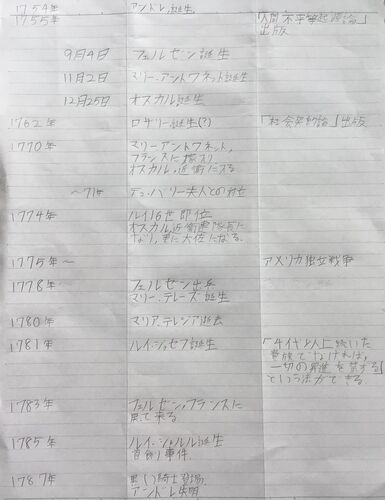 1754年 アンドレ誕生
1755年 「人間不平等起源論」
出版
9月4日 フェルゼン誕生
11月2日 マリー・アントワネット誕生
12月25日 オスカル誕生
1762年 ロザリー誕生(?) 「社会契約論」出版
1770年 マリーアントワネット、
フランスに嫁入り
オスカル、近衛に入る
〜71年 デュ・バリー夫人との対立
1774年 ルイ16世即位
オスカル、近衛連隊長に
なり、更に大佐になる。
1775年〜 アメリカ独立戦争
1778年 フェルゼン出兵
マリー・テレーズ誕生
1780年 マリア・テレジア逝去
1781年 ルイ・ジョゼフ誕生 「4代以上続いた
貴族でなければ、
一切の昇進を禁ずる」
という法ができる
1783年 フェルゼン、フランスに
戻って来る
1785年 ルイ・シャルル誕生
首飾り事件
1787年 黒い騎士登場、
アンドレ失明